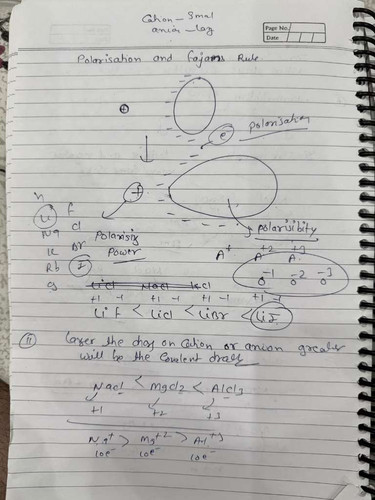 Cation - Smal
anion - Larg
Page No.
Date
Polarisation and Fajans Rule
+
e
polarisation
+
Polarising
Power
polarisibity
H
Li F
Na Cl
K Br
Rb I
Cs
A+ A+2 A+3
O-1 O-2 O-3
LiCl NaCl KCl
+1 -1 +1 -1 +1 -1 +1 -1
LiF < LiCl < LiBr < LiI
II Larger the charg on Cation or anion greater
will be the Covalent
NaCl < MgCl2 < AlCl3
+1 +2 +3
Na+ > Mg+2 > Al+3
10e- 10e- 10e-